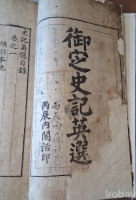 御定史記英選
丙辰內閣活印
史記英選目錄
卷之一
項羽本紀
kobay